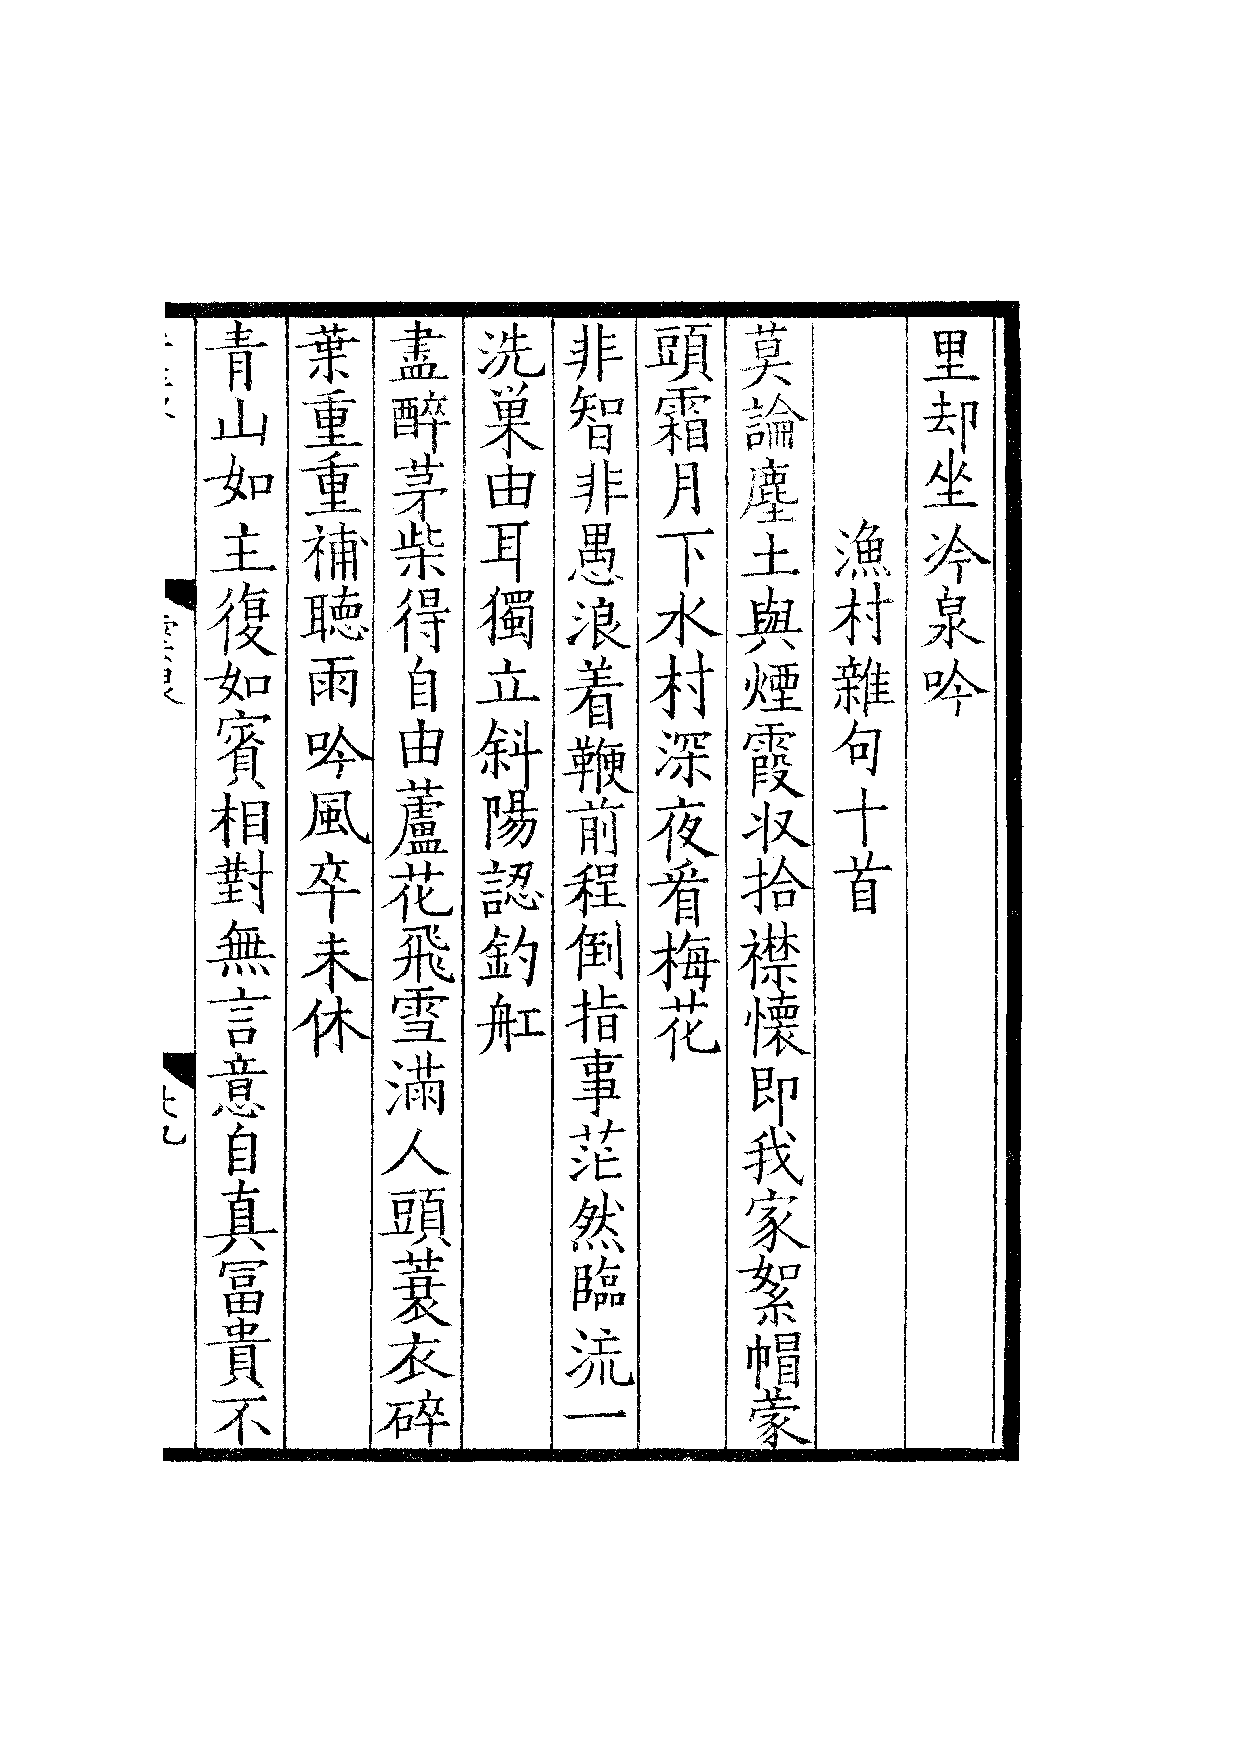 里却坐冷泉吟
漁村雜句十首
莫論塵土與煙霞収拾襟懷即我家絮帽蒙
頭霜月下水村深夜看梅花
非智非愚浪着鞭前程倒指事茫然臨流一
洗巢由耳獨立斜陽認釣舡
盡醉茅柴得自由蘆花飛雪滿人頭蓑衣碎
葉重重補聽雨吟風卒未休
青山如主復如賓相對無言意自真冨貴不